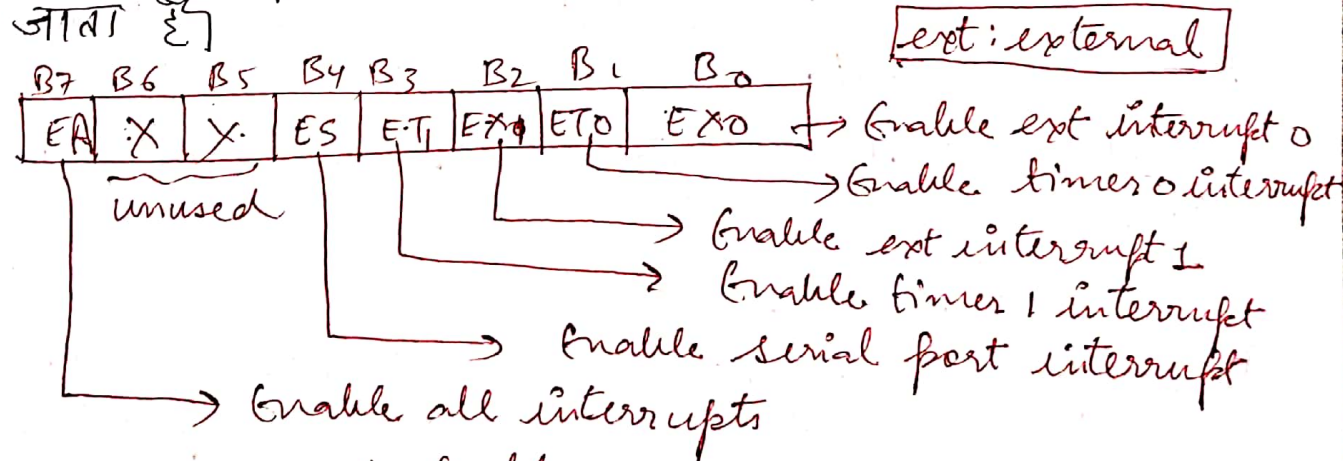 जाता है।
ext : external
B7 B6 B5 B4 B3 B2 B1 B0
EA X X ES ET1 EX1 ET0 EX0
Enable ext interrupt 0
Enable timer 0 interrupt
unused
Enable ext interrupt 1
Enable timer 1 interrupt
Enable serial port interrupt
Enable all interrupts